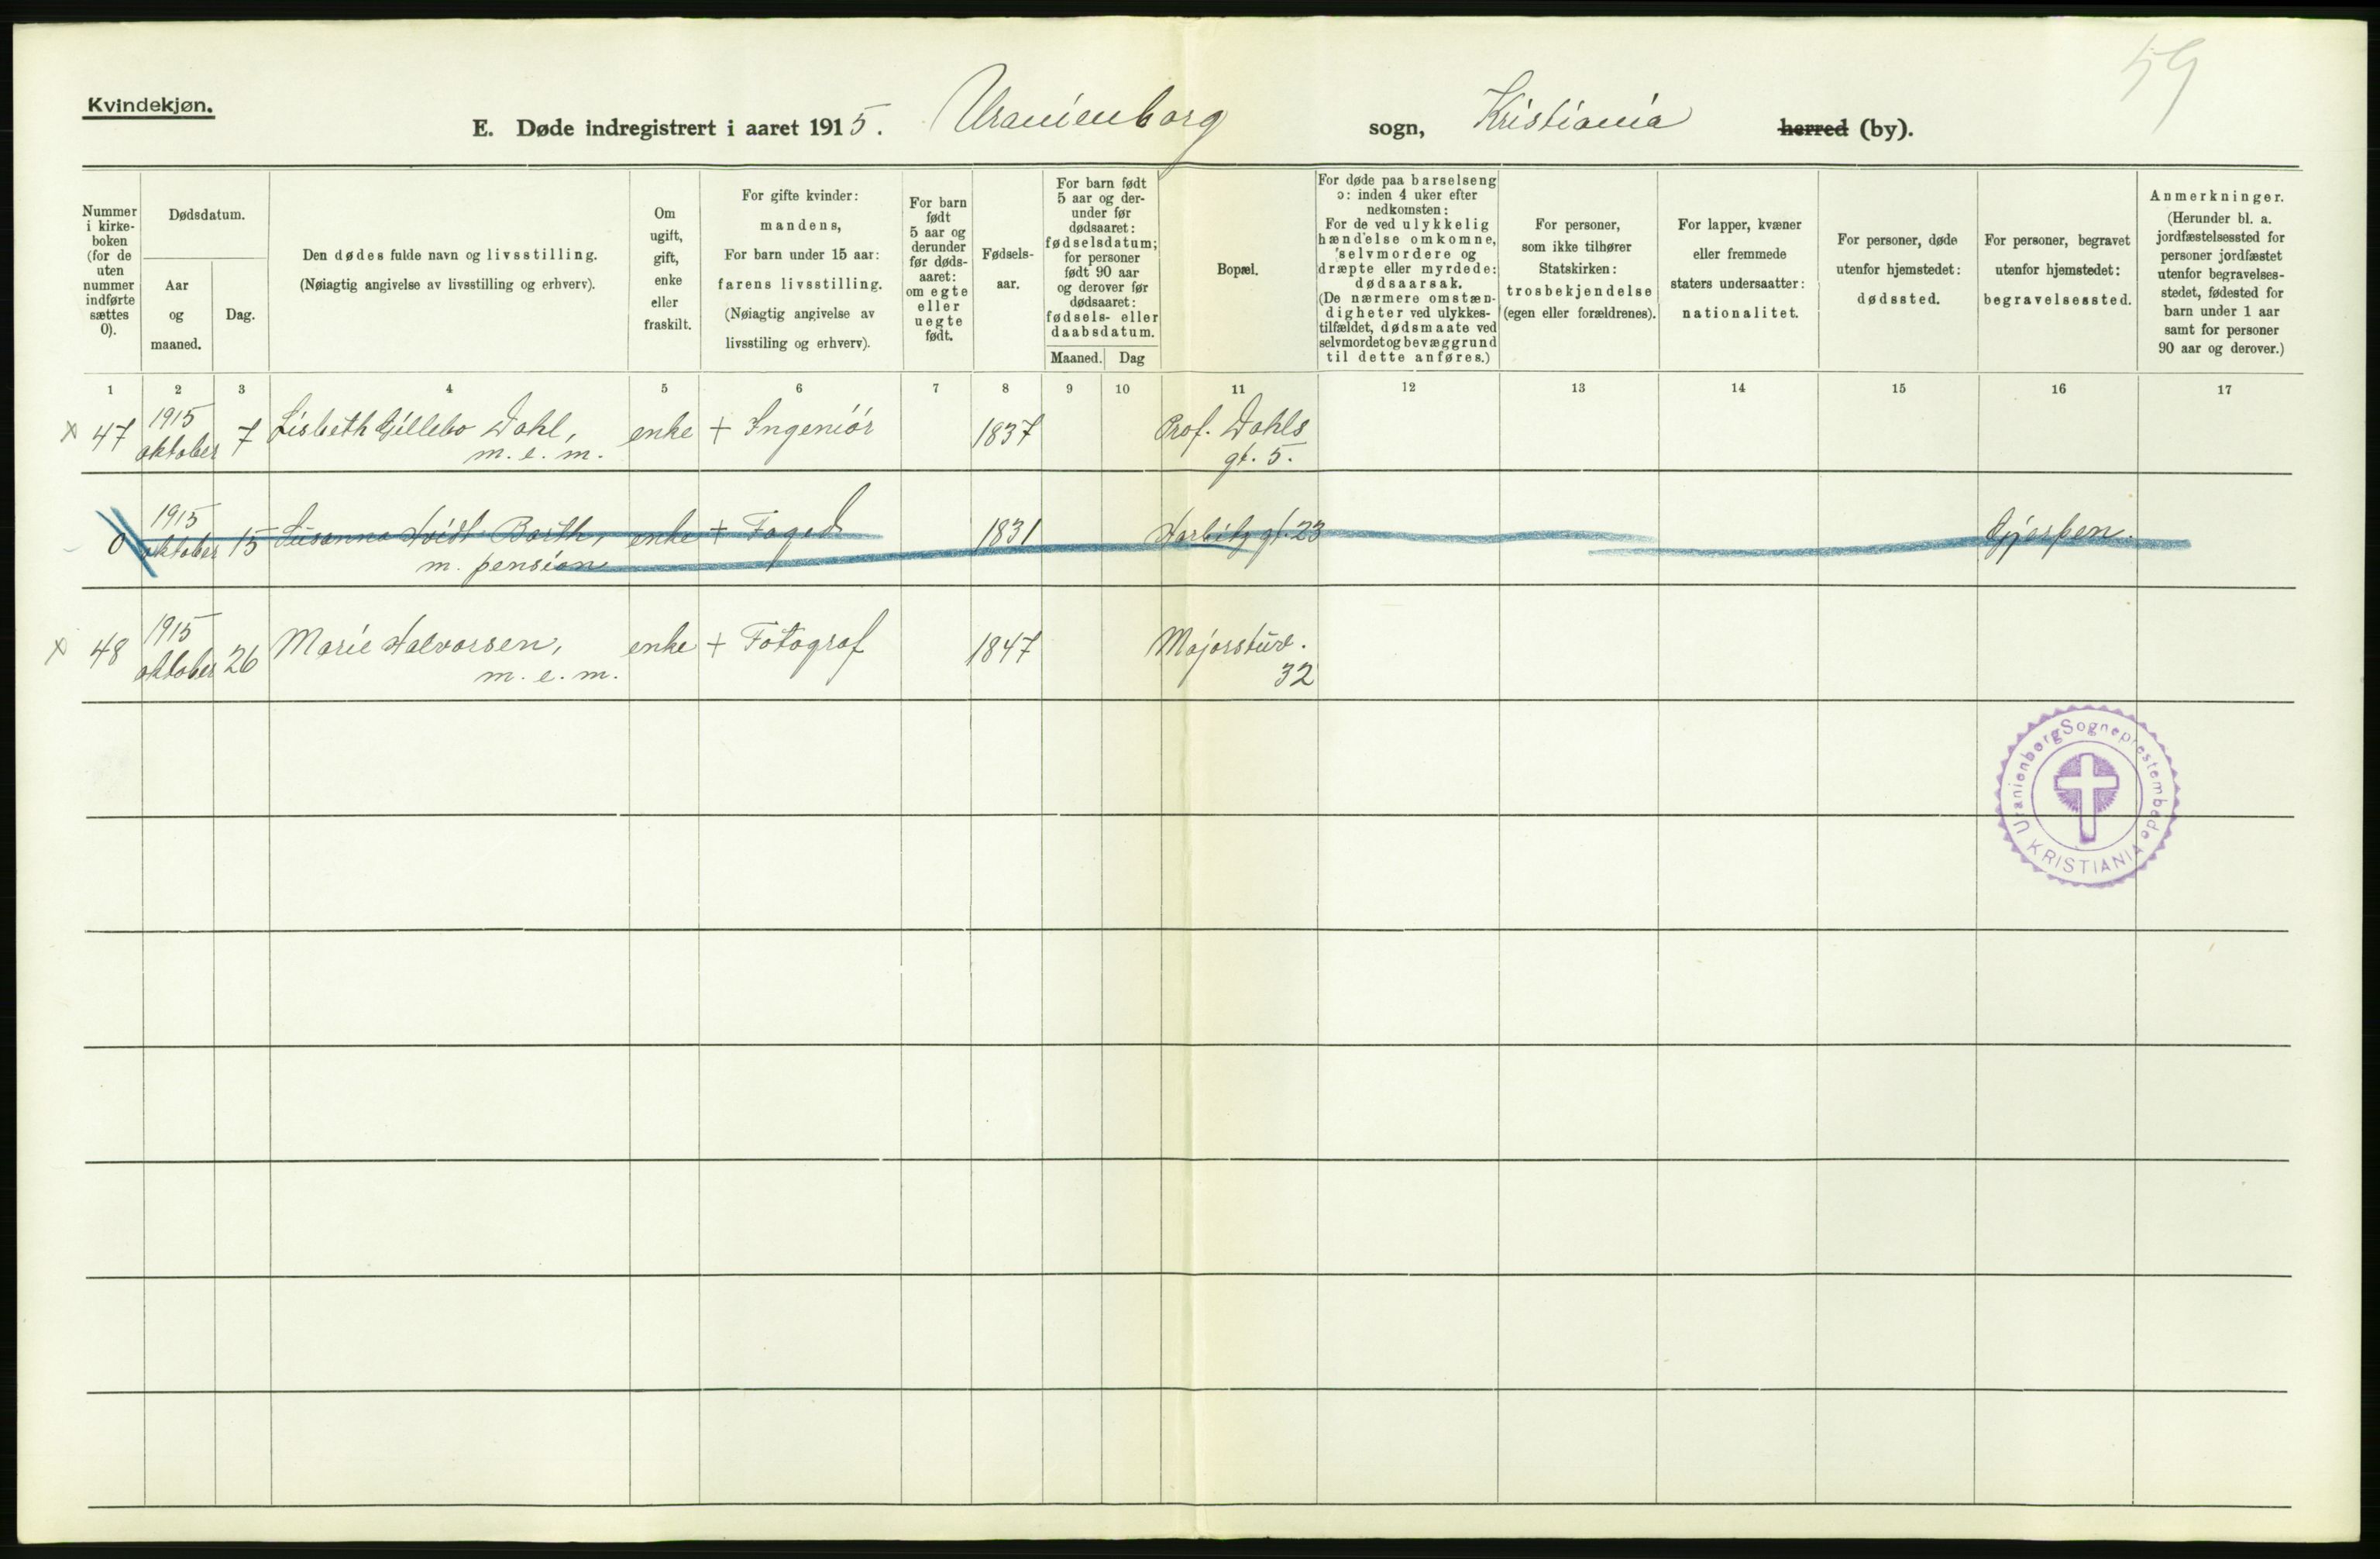 59
Kvindekjøn.
E. Døde indregistrert i aaret 1915. Uranienborg sogn, Kristiania herred (by).
Nummer i kirke-boken (for de uten nummer indførte sættes 0).
Dødsdatum.
Aar og maaned.
Dag.
Den dødes fulde navn og livsstilling.
(Nøiagtig angivelse av livsstilling og erhverv).
Om ugift, gift, enke eller fraskilt.
For gifte kvinder:
mandens,
For barn under 15 aar:
farens livsstilling.
(Nøiagtig angivelse av
livsstiling og erhverv).
For barn født 5 aar og derunder før døds-aaret: om egte eller uegte født.
Fødsels-aar.
For barn født
5 aar og der-
under før
dødsaaret:
fødselsdatum;
for personer
født 90 aar
og derover før
dødsaaret:
fødsels- eller
daabsdatum.
Maaned. Dag
Bopæl.
For døde paa barselseng
ɔ: inden 4 uker efter
nedkomsten:
For de ved ulykkelig
hændelse omkomne,
selvmordere og
dræpte eller myrdede:
dødsaarsak.
(De nærmere omstæn-
digheter ved ulykkes-
tilfældet, dødsmaate ved
selvmordet og bevæggrund
til dette anføres.)
For personer,
som ikke tilhører
Statskirken:
trosbekjendelse
(egen eller forældrenes).
For lapper, kvæner
eller fremmede
staters undersaatter:
nationalitet.
For personer, døde
utenfor hjemstedet:
dødssted.
For personer, begravet
utenfor hjemstedet:
begravelsessted.
Anmerkninger.
(Herunder bl. a.
jordfæstelsessted for
personer jordfæstet
utenfor begravelses-
stedet, fødested for
barn under 1 aar
samt for personer
90 aar og derover.)
1 2 3 4 5 6 7 8 9 10 11 12 13 14 15 16 17
x 47 1915 oktober 7 Lisbeth Gillebo Dahl, enke + Ingeniör 1837 Prof. Dahls
m. e. m. gt. 5.
0 1915 oktober 15 Susanna Hvidt Barth, enke + Foged 1831 Harbitz gt. 23 Gjerpen.
m. pension
x 48 1915 oktober 26 Marie Halvorsen, enke + Fotograf 1847 Majorstuv.
m. e. m. 32
Uranienborg Sogneprestembede
KRISTIANIA